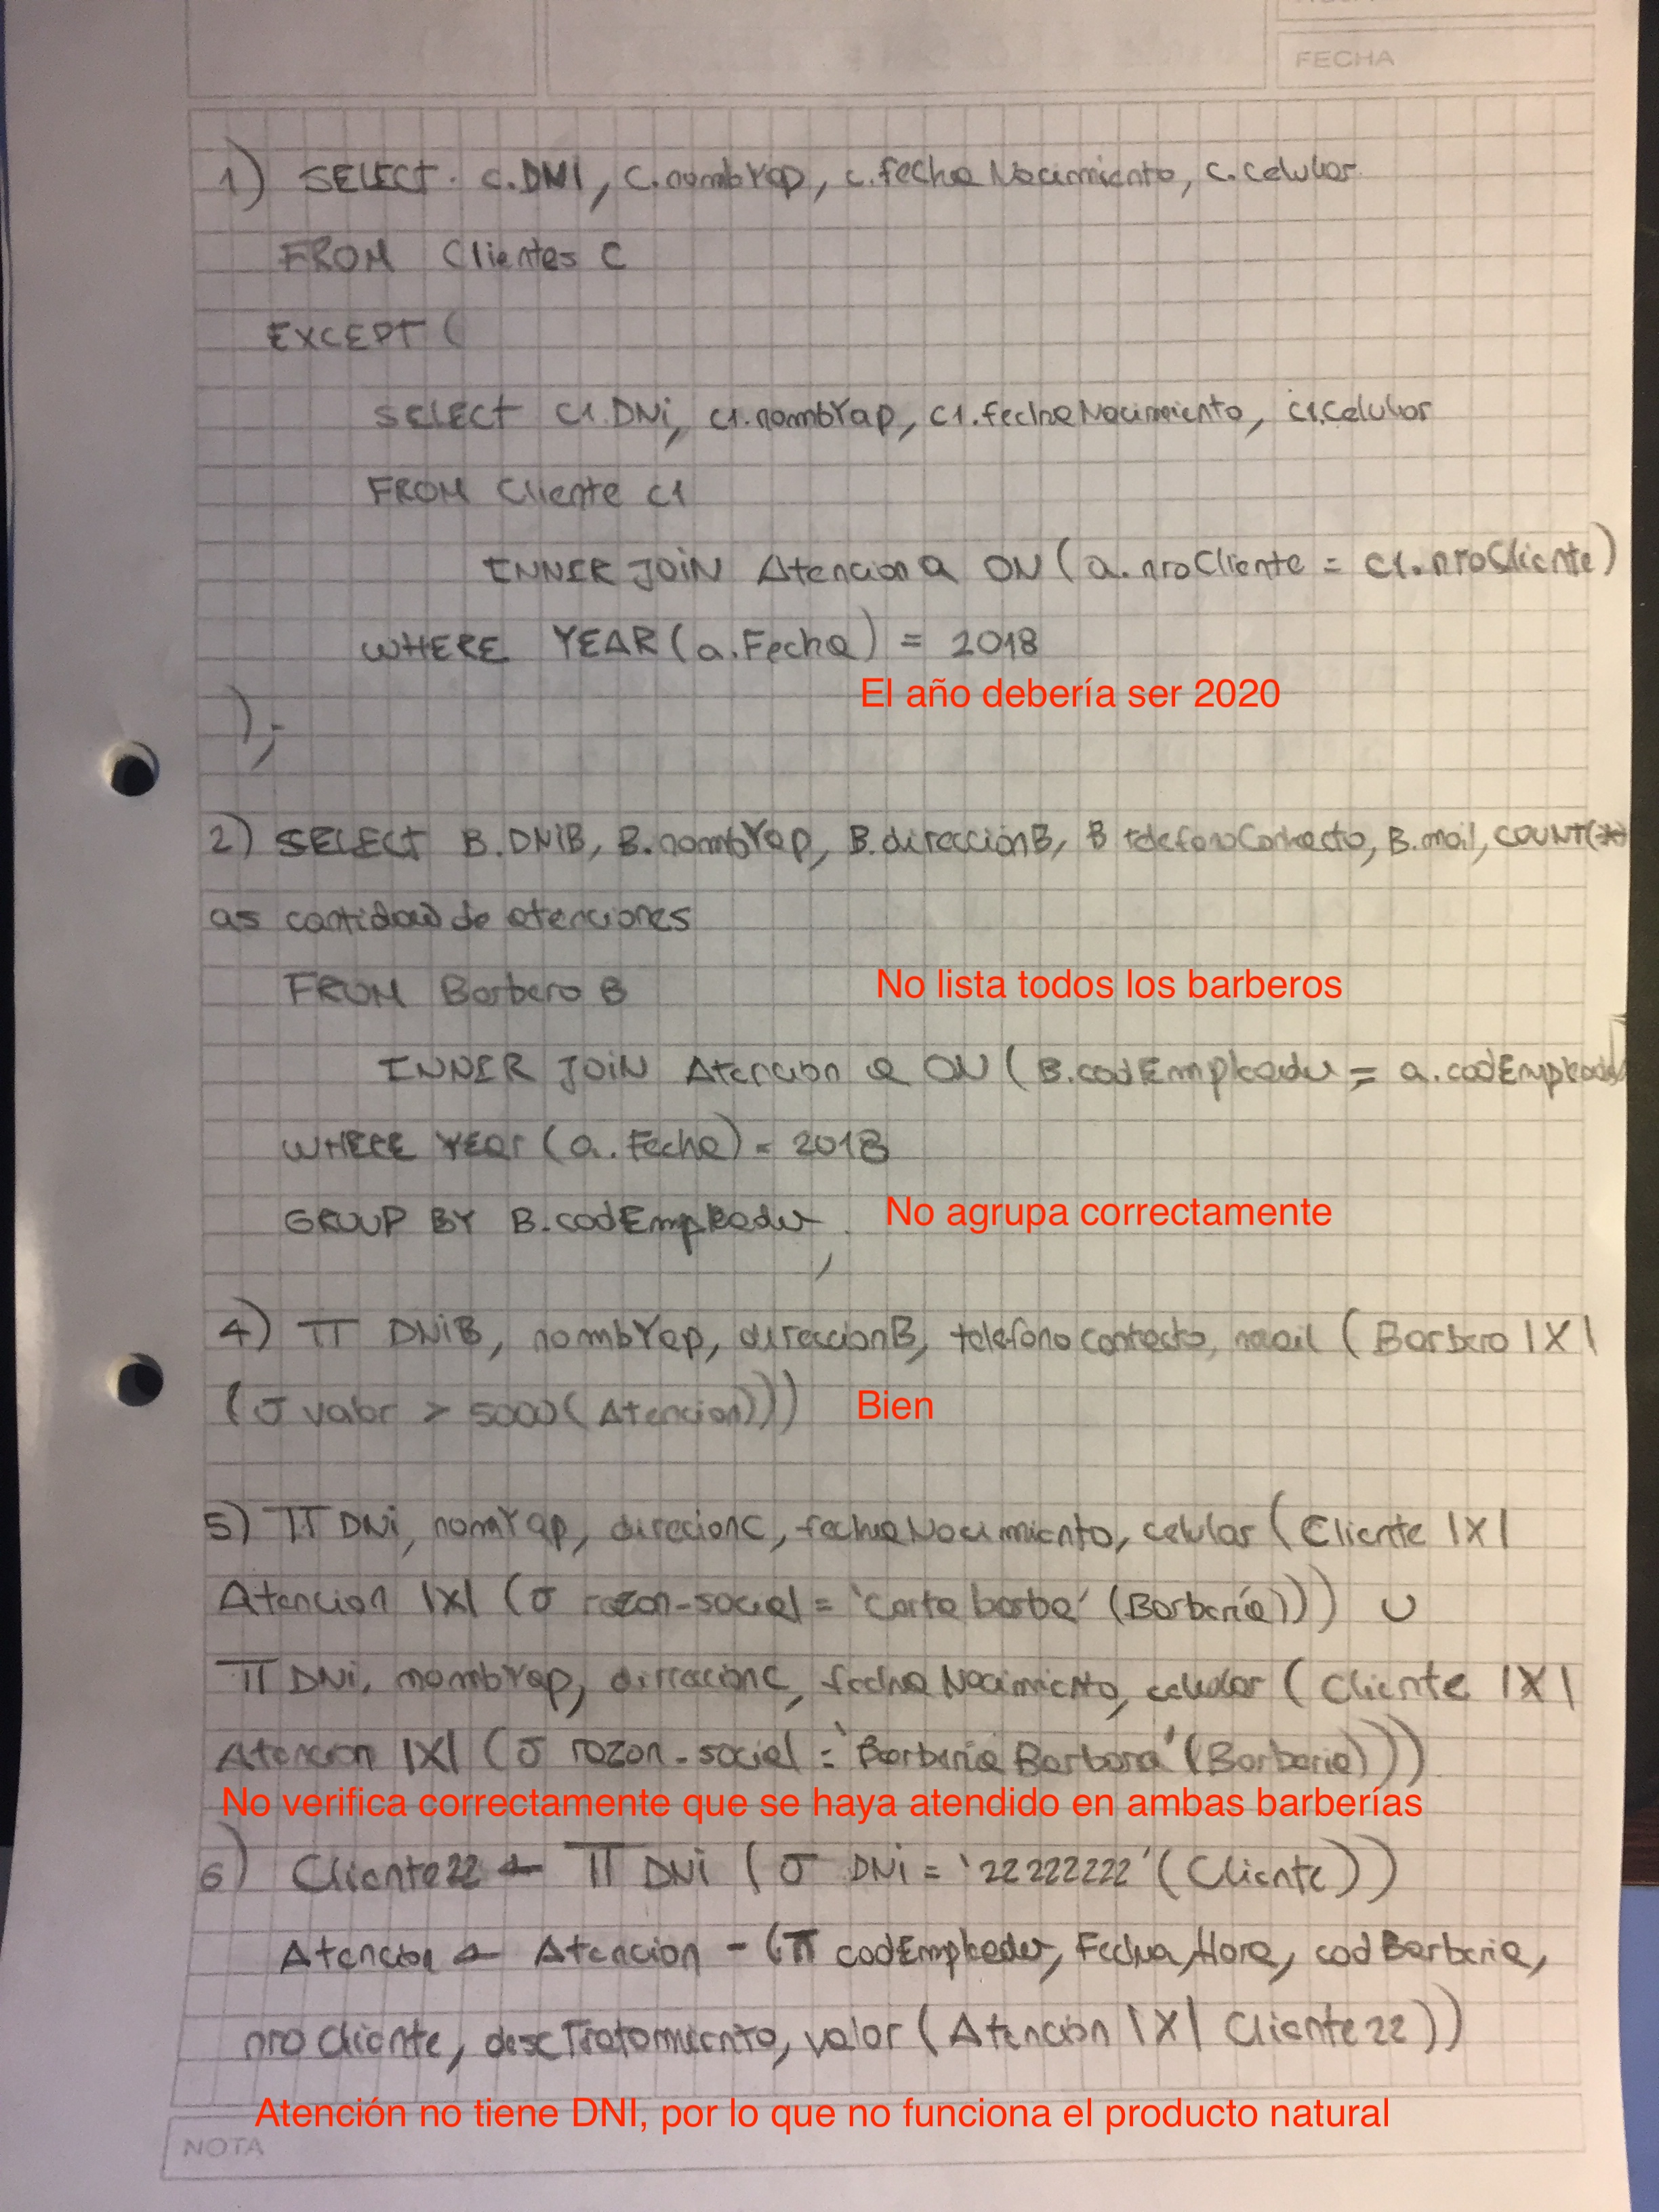 FECHA
1) SELECT c.DNI, C.nombYap, c.fechaNacimiento, c.celular
FROM Clientes C
EXCEPT (
SELECT C1.DNi, c1.nombYap, c1.fechaNacimiento, c1.celular
FROM Cliente c1
INNER JOIN Atencion a ON (a.nroCliente = c1.nroCliente)
WHERE YEAR(a.Fecha) = 2018
El año debería ser 2020
);
2) SELECT B.DNIB, B.nombYap, B.direcciónB, B telefonoContacto, B.mail, COUNT(*)
as cantidad de atenciones
FROM Barbero B
No lista todos los barberos
INNER JOIN Atencion a ON (B.codEmpleado = a.codEmpleado
WHERE YEAr (a.Fecha) = 2018
GROUP BY B.codEmpleado;
No agrupa correctamente
4) π DNiB, nombYap, direccionB, telefonoContacto, mail (Barbero |X|
(σ valor > 5000 (Atencion)))
Bien
5) π DNi, nomYap, direcionC, fechaNacimiento, celular (Cliente |X|
Atencion |X| (σ razon-social = 'Corta barba' (Barbería))) ∪
π DNi, nombYap, direccionC, fechaNacimiento, celular (Cliente |X|
Atencion |X| (σ razon-social = 'Barbería Barbara' (Barberia)))
No verifica correctamente que se haya atendido en ambas barberías
6) Cliente22 ← π DNi (σ DNi = '22222222' (Cliente))
Atencion ← Atencion - (π codEmpleado, Fecha, Hora, codBarberia,
nroCliente, descTratamiento, valor (Atención |X| Cliente22))
Atención no tiene DNI, por lo que no funciona el producto natural
NOTA